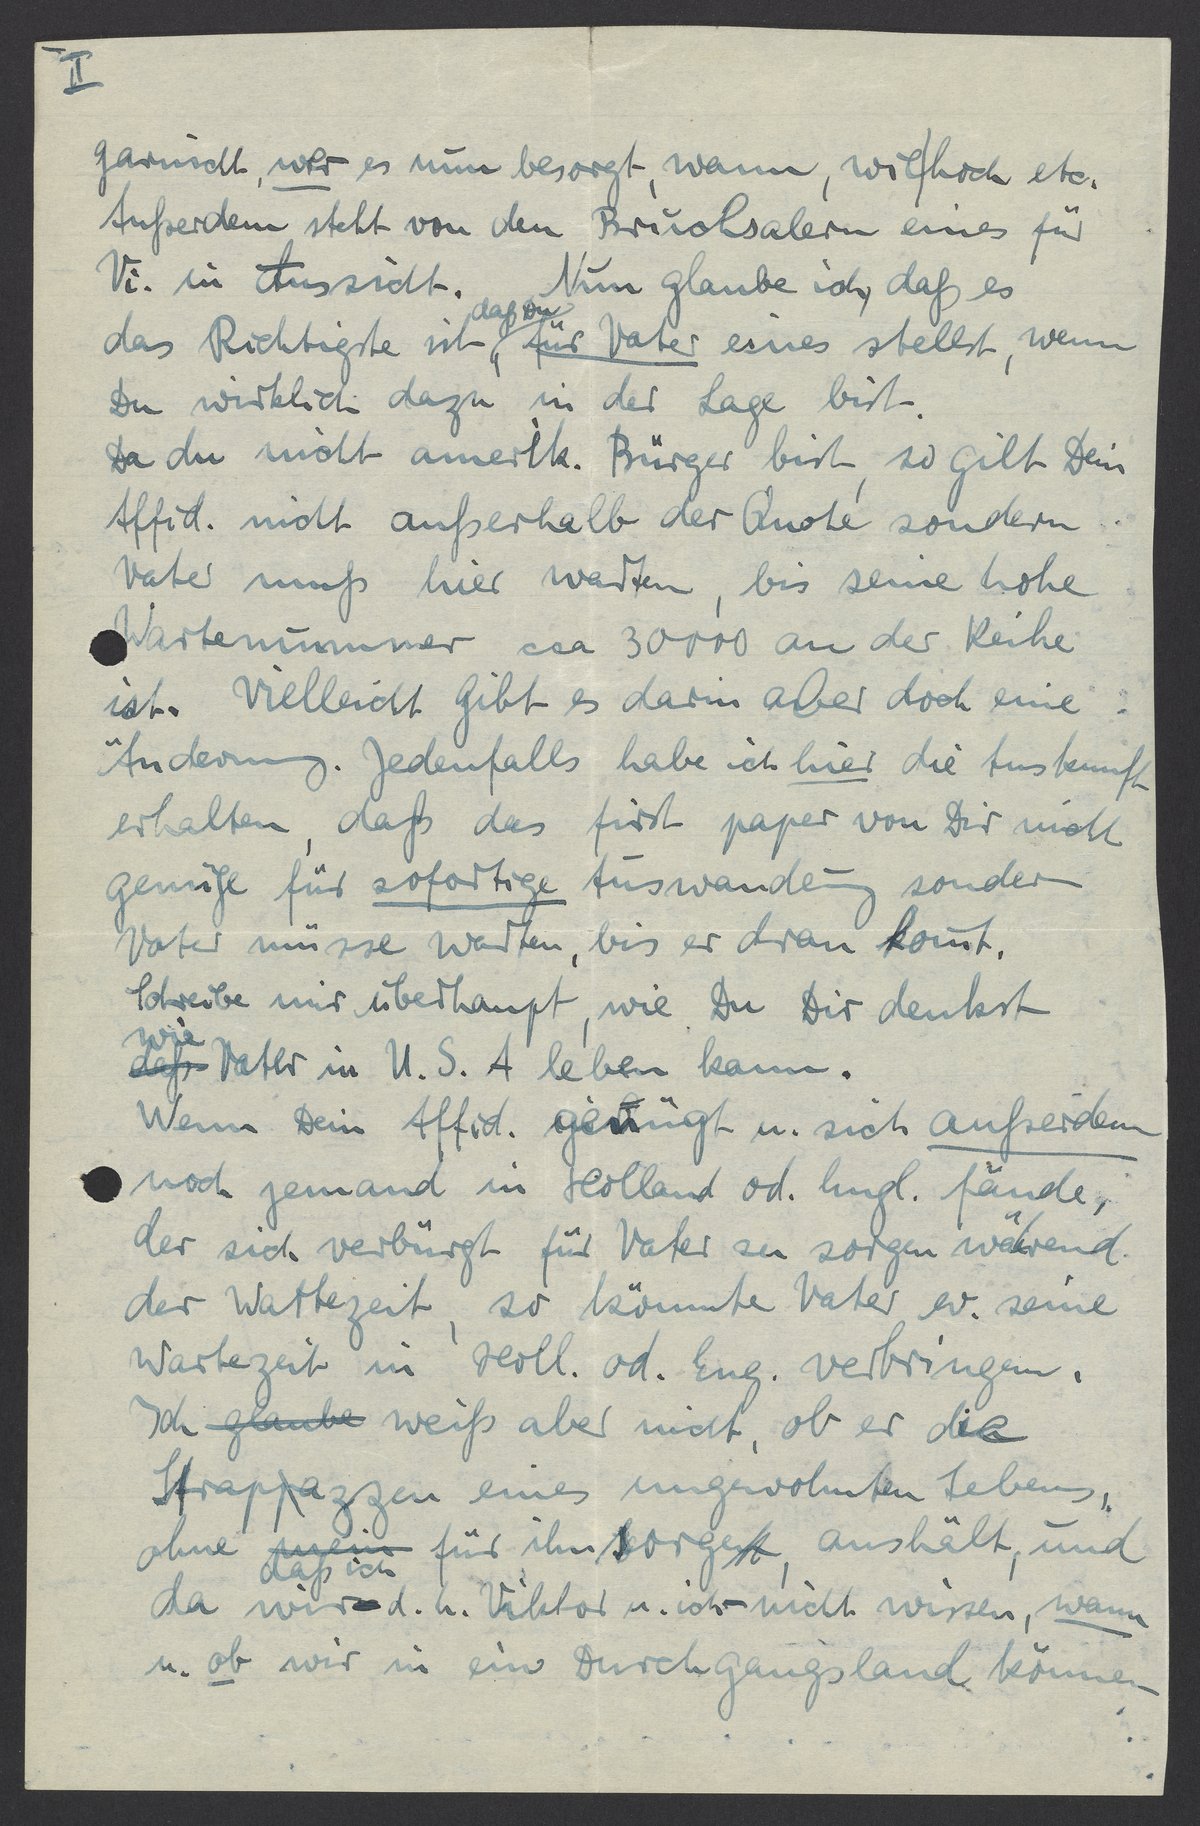 II
garnicht, wer es nun besorgt, wann, wie hoch etc.
Außerdem steht von den Bruchsalern eines für
Vi. in Aussicht. Nun glaube ich, daß es
das Richtigste ist, daß Du für Vater eines stellst, wenn
Du wirklich dazu in der Lage bist.
Da du nicht amerik. Bürger bist, so gilt Dein
Affid. nicht außerhalb der Quote sondern
Vater muß hier warten, bis seine hohe
Wartenummer cca 30000 an der Reihe
ist. Vielleicht gibt es darin aber doch eine
Änderung. Jedenfalls habe ich hier die Auskunft
erhalten, daß das first paper von Dir nicht
genüge für sofortige Auswanderung sondern
Vater müsse warten, bis er dran komt.
Schreibe mir überhaupt, wie Du Dir denkst
wie
daß Vater in U.S.A leben kann.
Wenn Dein Affid. genügt u. sich außerdem
noch jemand in Holland od. Engl. fände,
der sich verbürgt für Vater zu sorgen während
der Wartezeit, so könnte Vater ev. seine
Wartezeit in Holl. od. Eng. verbringen.
Ich glaube weiß aber nicht, ob er die
Strappazzen eines ungewohnten Lebens,
ohne mein daß ich für ihn sorge, aushält, und
da wir - d. h. Viktor u. ich - nicht wissen, wann
u. ob wir in ein Durchgangsland können